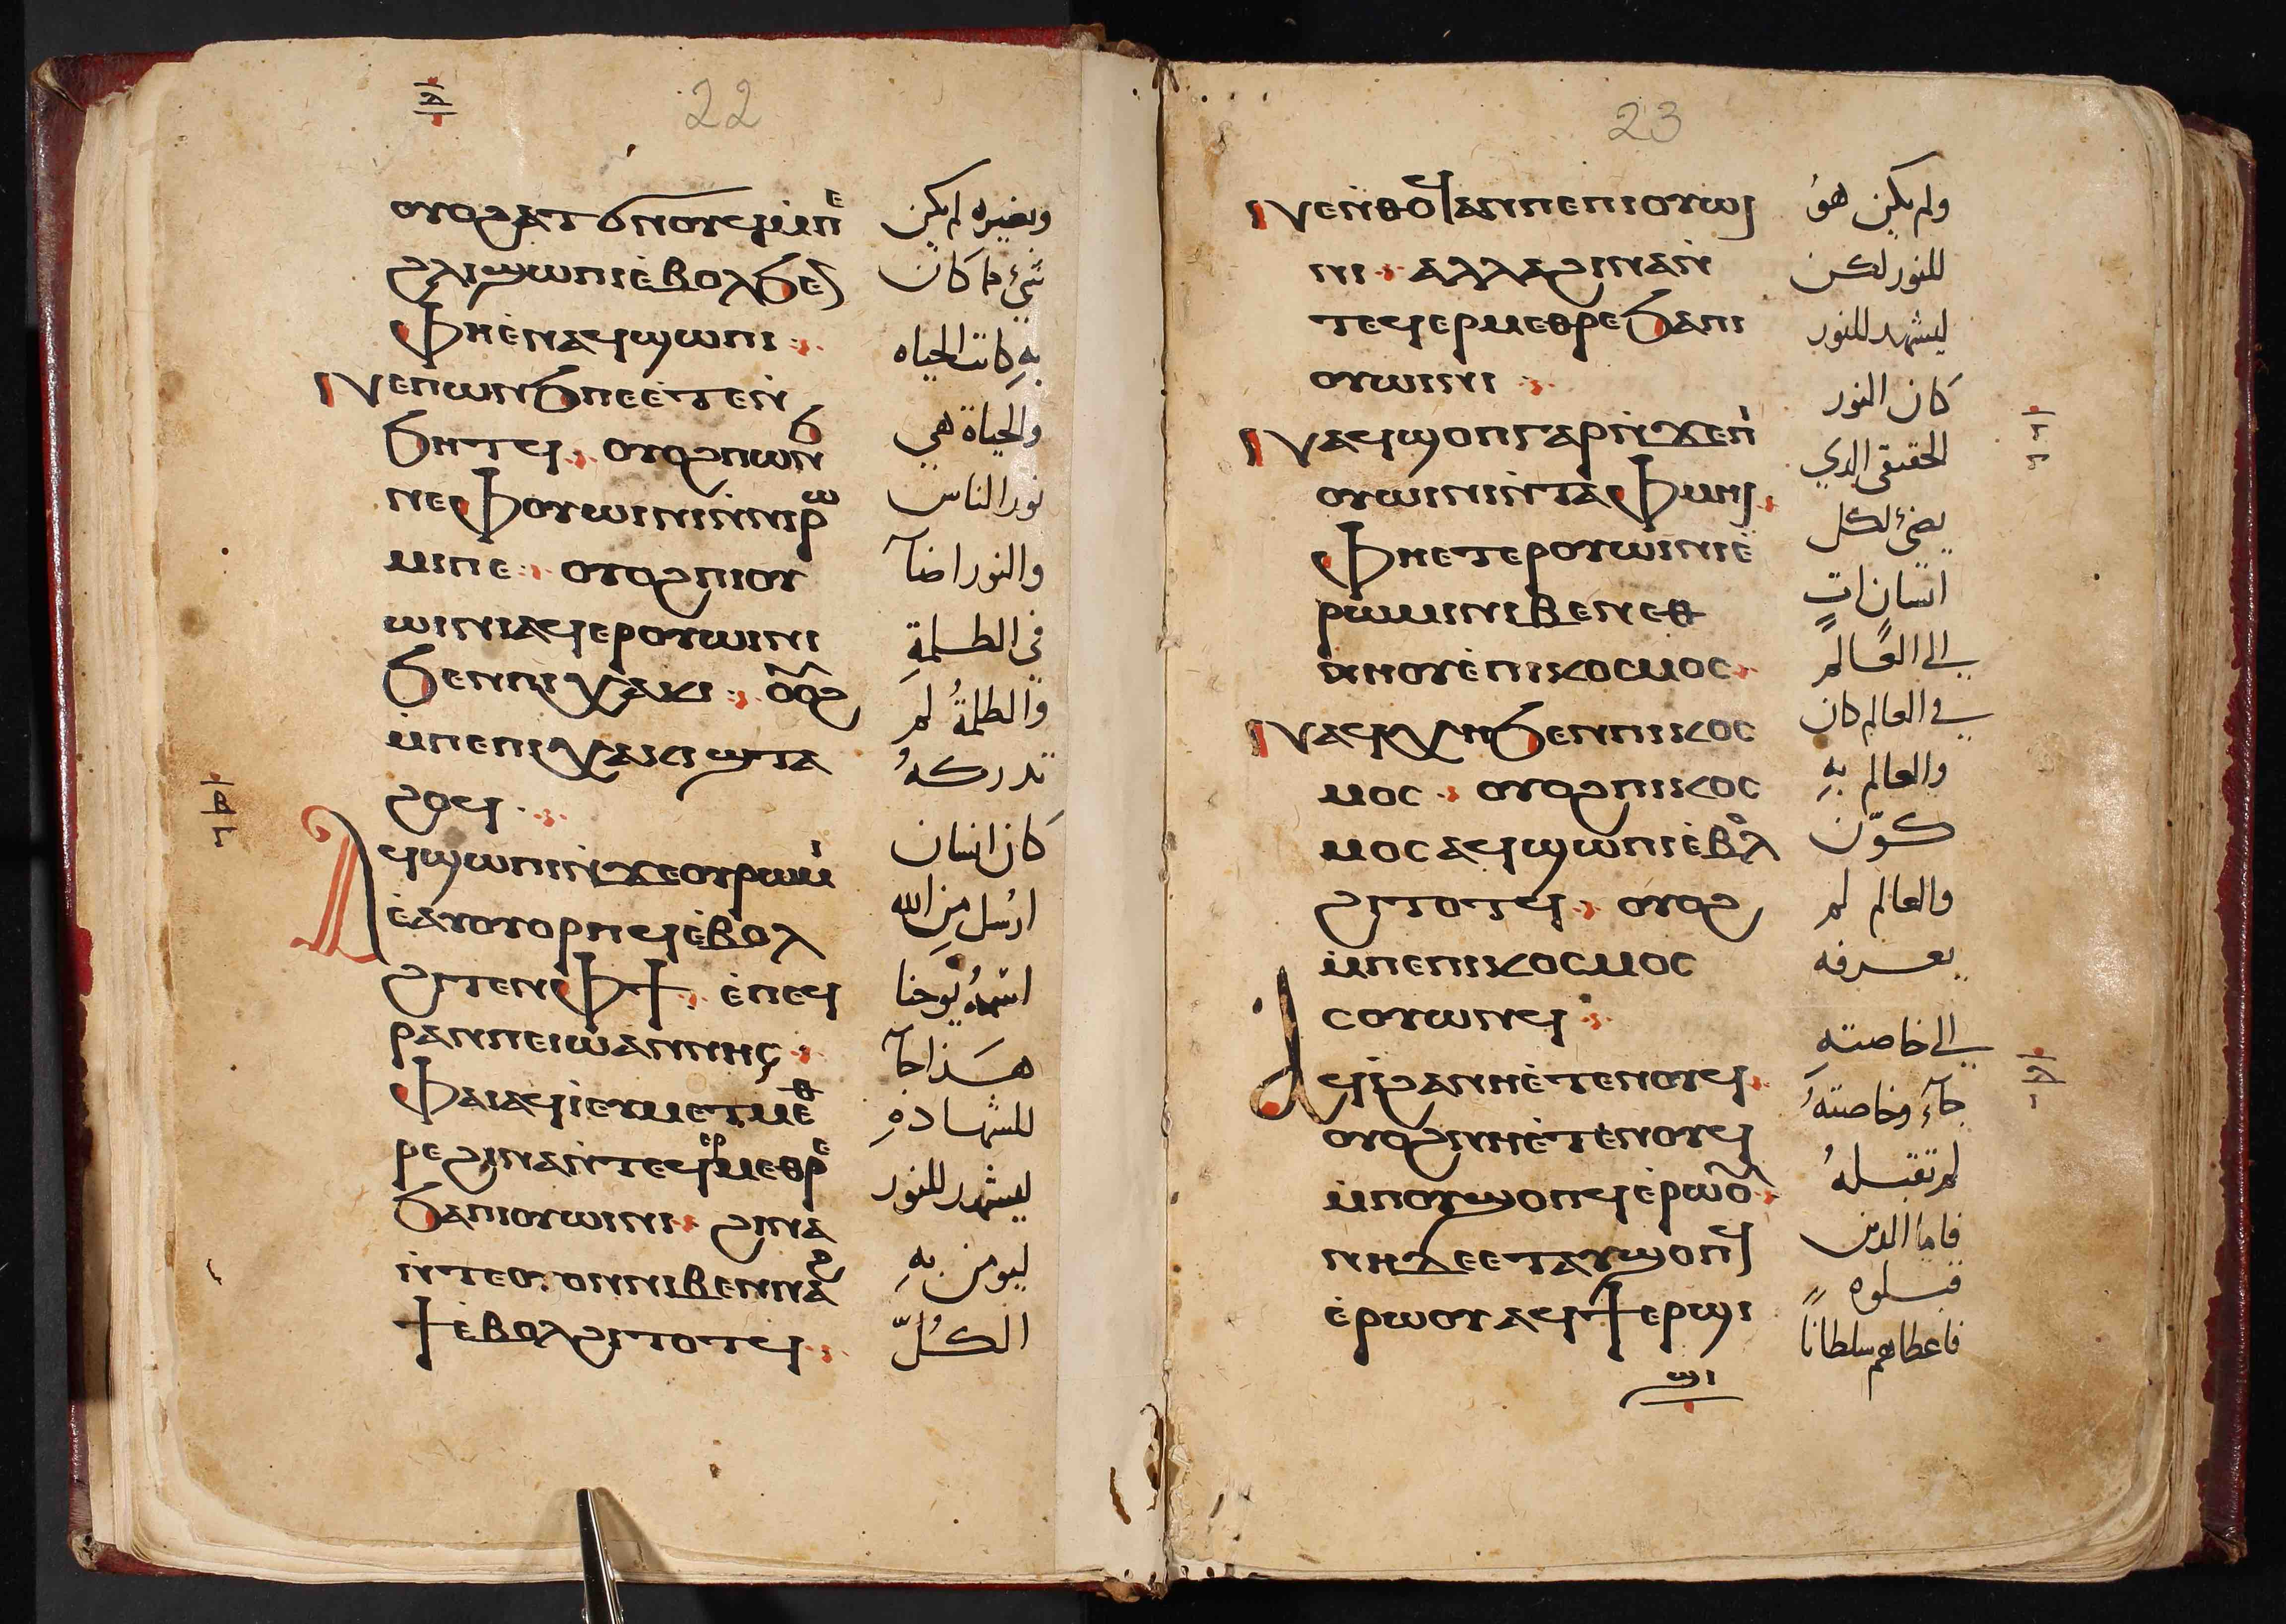 ⲁ̅
22
ⲟⲩⲟϩⲁⲧϭⲛⲟⲩϥⲙ̀ⲡⲉ
ϩⲗⲓϣⲱⲡⲓⲉ̀ⲃⲟⲗϧⲉⲛ
ⲫⲏⲉ̀ⲛⲁϥϣⲱⲡⲓ :
Ⲛⲉⲡⲱⲛϧⲡⲉⲉ̀ⲧⲉⲛ̀
ϧⲏⲧϥ : ⲟⲩⲟϩⲡⲱⲛϧ
ⲛⲉⲫⲟⲩⲱⲓⲛⲓⲛ̀ⲛⲓⲣⲱ
ⲙⲓⲡⲉ : ⲟⲩⲟϩⲡⲓⲟⲩ
ⲱⲓⲛⲓⲁϥⲉⲣⲟⲩⲱⲓⲛⲓ
ϧⲉⲛⲡⲓⲭⲁⲕⲓ : ⲟⲩⲟϩ
ⲙ̀ⲡⲉⲡⲓⲭⲁⲕⲓϣⲧⲁ
ϩⲟϥ :
Ⲁϥϣⲱⲡⲓⲛ̀ϫⲉⲟⲩⲣⲱⲙⲓ
ⲉ̀ⲁⲩⲟⲩⲟⲣⲡϥⲉ̀ⲃⲟⲗ
ϩⲓⲧⲉⲛⲫϯ : ⲉ̀ⲡⲉϥ
ⲣⲁⲛⲡⲉⲓⲱⲁⲛⲛⲏⲥ :
ⲫⲁⲓⲁϥⲓ̀ⲉⲩⲙⲉⲧⲙⲉⲑ
ⲣⲉϩⲓⲛⲁⲛ̀ⲧⲉϥⲉⲣⲙⲉⲑⲣⲉ
ϧⲁⲡⲓⲟⲩⲱⲓⲛⲓ : ϩⲓⲛⲁ
ⲛ̀ⲧⲉⲟⲩⲟⲛⲛⲓⲃⲉⲛⲛⲁϩ
ϯⲉ̀ⲃⲟⲗϩⲓⲧⲟⲧϥ :
وبغيره لم يكن
شئ مما كان
بهِ كانت الحياه
والحياة هي
نور الناس
والنور اضآ
في الظلمةِ
والظلمةُ لم
تدركهُ
كان انسان
ارسُل من الله
اسمهُ يوحنا
هَذا جآ
للشهادهِ
ليشهد للنور
ليومن بهِ
الكُلّ
23
Ⲛⲉⲛ̀ⲑⲟϥⲁⲛⲡⲉⲡⲓⲟⲩⲱⲓ
ⲛⲓ : ⲁⲗⲗⲁϩⲓⲛⲁⲛ̀
ⲧⲉϥⲉⲣⲙⲉⲑⲣⲉϧⲁⲡⲓ
ⲟⲩⲱⲓⲛⲓ :
Ⲛⲁϥϣⲟⲡⲅⲁⲣⲛ̀ϫⲉⲡⲓ
ⲟⲩⲱⲓⲛⲓⲛ̀ⲧⲁⲫⲙⲏⲓ :
ⲫⲏⲉⲧⲉⲣⲟⲩⲱⲓⲛⲓⲉ̀
ⲣⲱⲙⲓⲛⲓⲃⲉⲛⲉⲑ
ⲛⲏⲟⲩⲉ̀ⲡⲓⲕⲟⲥⲙⲟⲥ :
Ⲛⲁϥⲭⲏϧⲉⲛⲡⲓⲕⲟⲥ
ⲙⲟⲥ : ⲟⲩⲟϩⲡⲓⲕⲟⲥ
ⲙⲟⲥⲁϥϣⲱⲡⲓⲉ̀ⲃⲟⲗ
ϩⲓⲧⲟⲧϥ : ⲟⲩⲟϩ
ⲙ̀ⲡⲉⲡⲓⲕⲟⲥⲙⲟⲥ
ⲥⲟⲩⲱⲛϥ :
ⲁϥⲓ̀ϩⲁⲛⲏⲉ̀ⲧⲉⲛⲟⲩϥ :
ⲟⲩⲟϩⲛⲏⲉ̀ⲧⲉⲛⲟⲩϥ
ⲙ̀ⲡⲟⲩϣⲟⲡϥⲉ̀ⲣⲱⲟⲩ :
ⲛⲏⲇⲉⲉⲧⲁⲩϣⲟⲡϥ
ⲉ̀ⲣⲱⲟⲩⲁϥϯⲉⲣϣⲓ
ولم يكن هوُ
للنور لكن
ليشهد للنور
كان النور
الحقيقي الدي
يضئ لكل
انسان اتٍ
الى العالم
في العالم كان
والعالم بهِ
كوّن
والعالم لم
يعرفه
الى خاصتهِ
جآء وخاصتهُ
لم تقبلهُ
فاما الدين
قبلوه
فاعطاهم سلطاناً